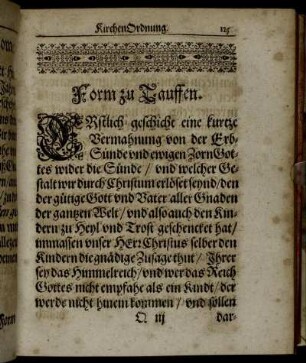 KirchenOrdnung. 115
Form zu Tauffen.
ERstlich geschicht eine kurtze
Vermahnung von der Erb-
Sünde vnd ewigen Zorn Got-
tes wider die Sünde / vnd welcher Ge-
stalt wir durch Christum erlöset seynd / den
der gütige Gott vnd Vater aller Gnaden
der gantzen Welt / vnd also auch den Kin-
dern zu Heyl vnd Trost geschencket hat /
inmassen vnser HErr Christus selber den
Kindern die gnädige Zusage thut / Ihrer
sey das Himmelreich / vnd wer das Reich
Gottes nicht empfahe als ein Kindt / der
werde nicht hinein kommen / vnd sollen
Q iij dar-